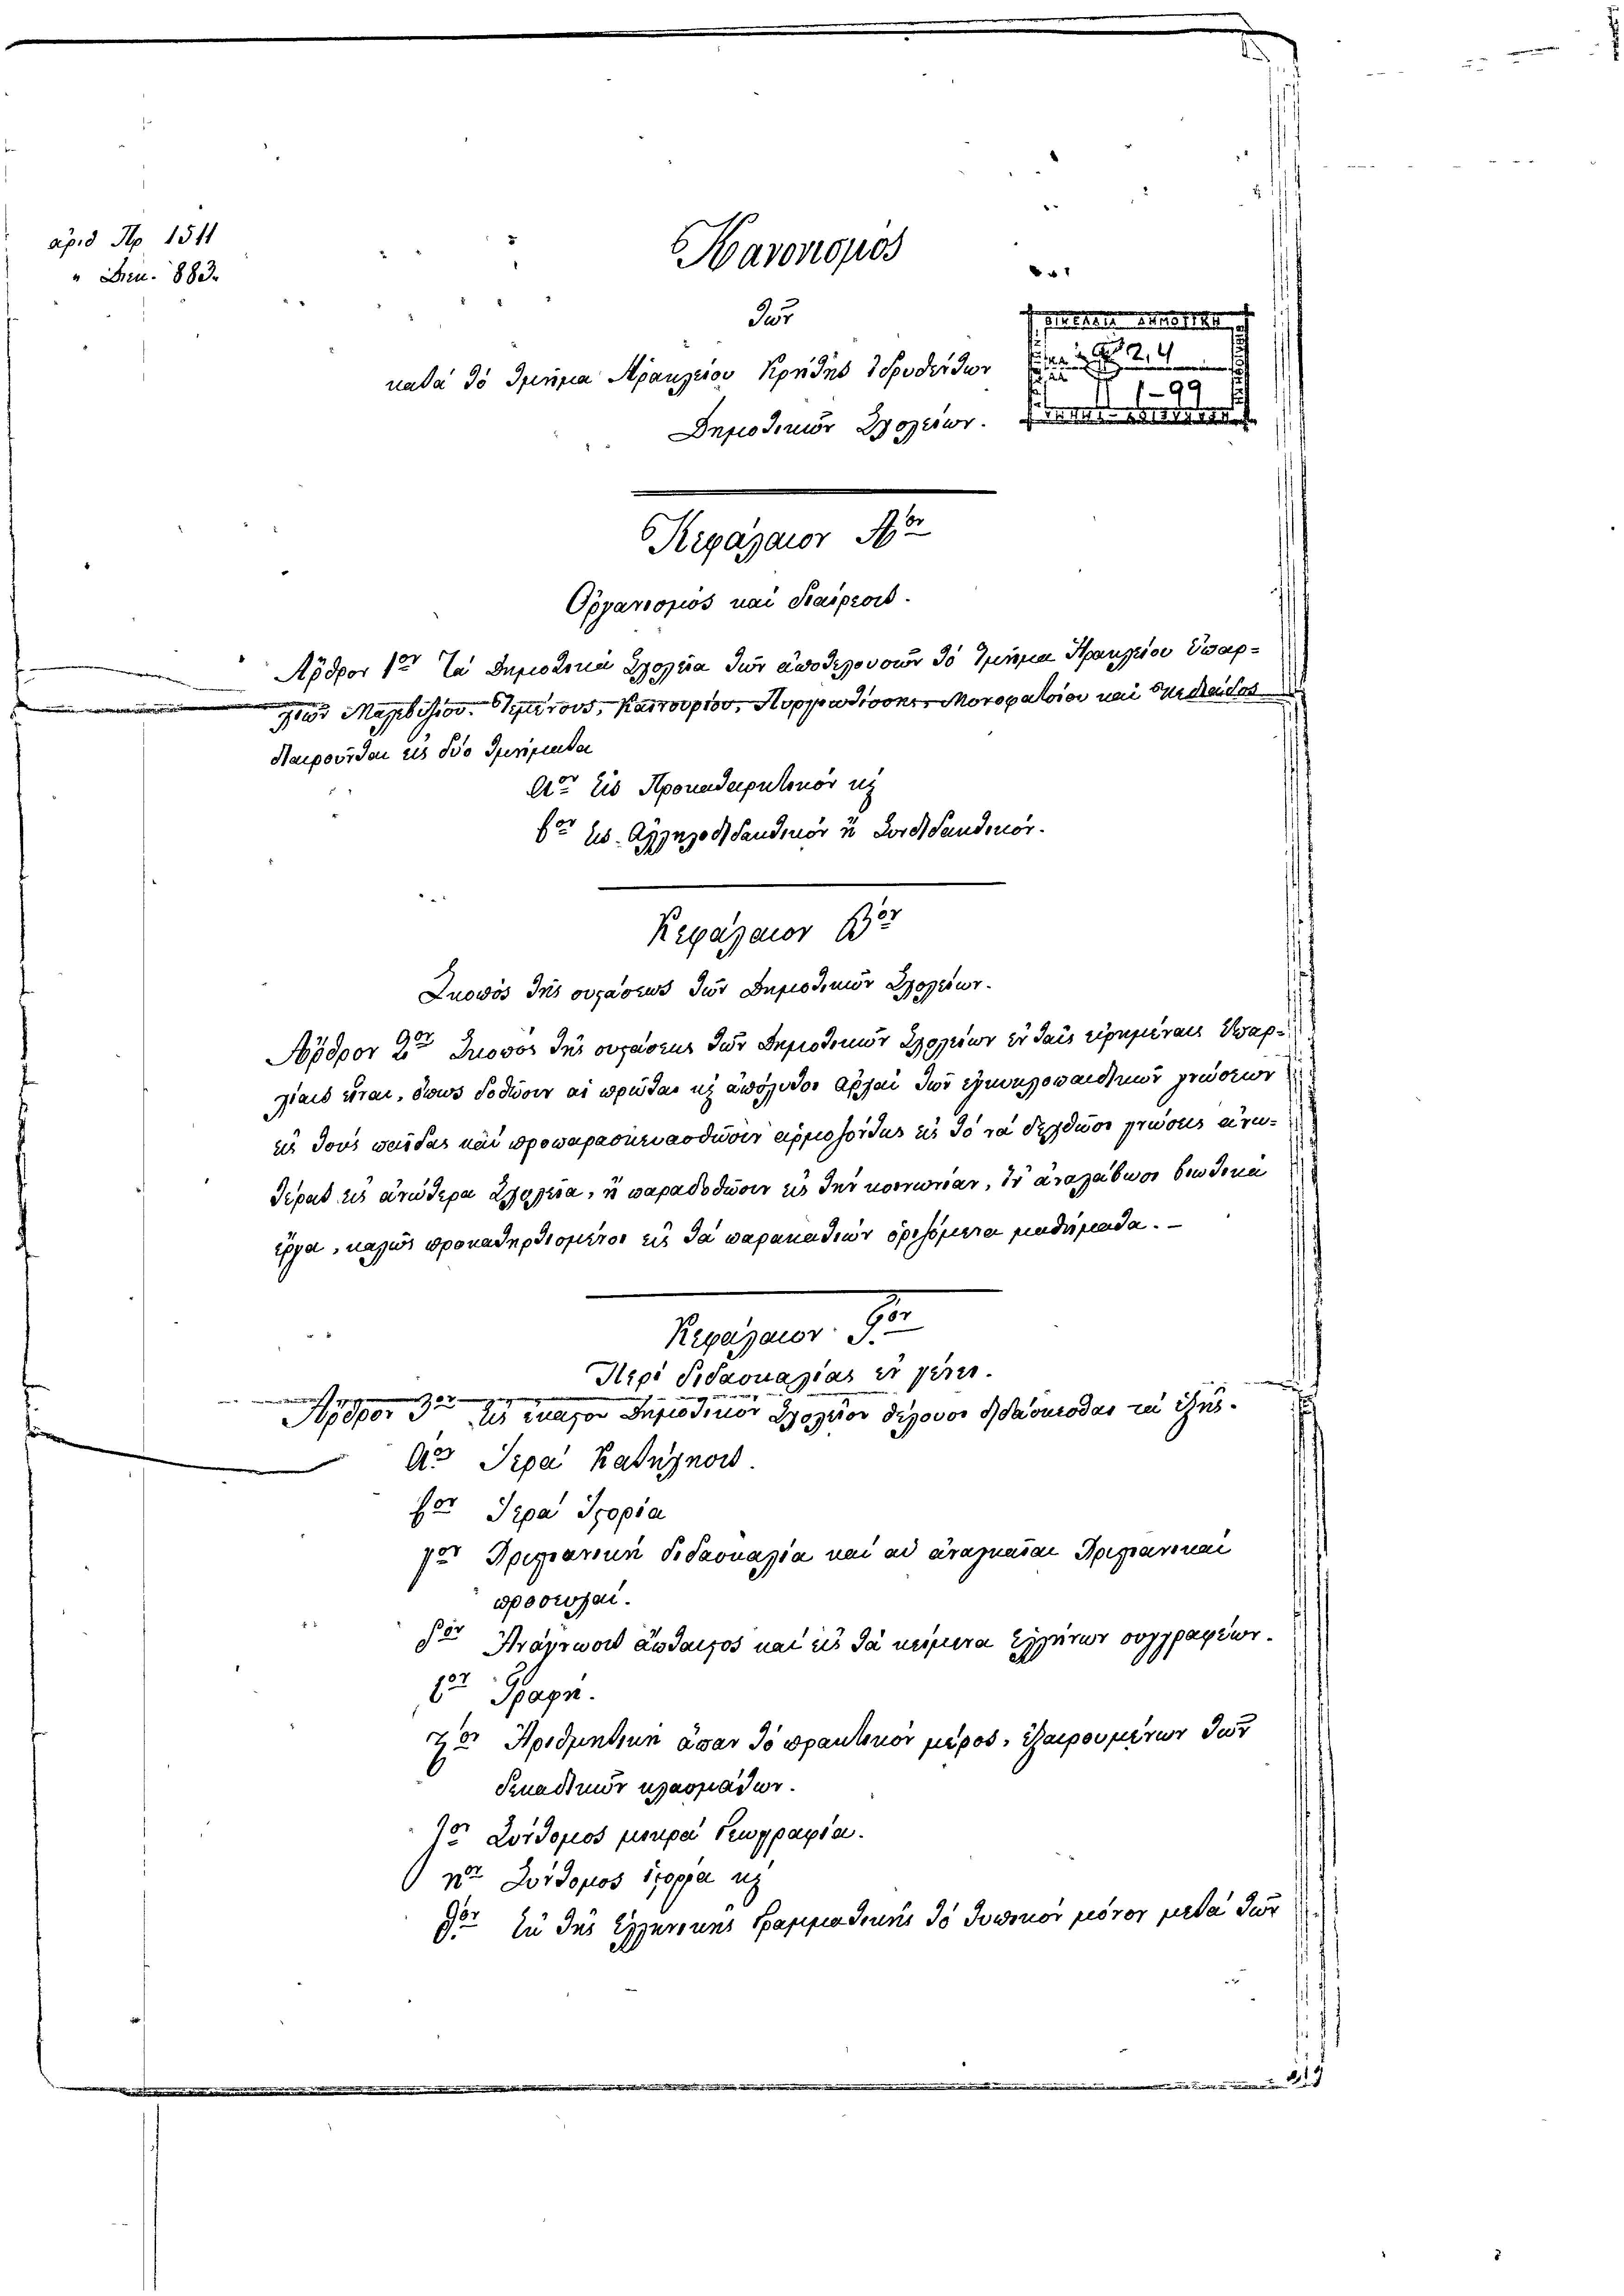 ἀριθ Πρ 1511
" Διεκ. 883.
Κανονισμὸς
τῶν
κατὰ τὸ τμῆμα Ἡρακλείου Κρήτης ἱδρυθέντων
Δημοτικῶν Σχολείων.
2,4
1-99
Κεφάλαιον Αον
Ὀργανισμὸς καὶ διαίρεσις.
Ἄρθρον 1ον Τὰ Δημοτικὰ Σχολεῖα τῶν ἀποτελουσῶν τὸ τμῆμα Ἡρακλείου Ἐπαρ-
χιῶν Μαλεβιζίου. Τεμένους, Καινουρίου, Πυργιωτίσσης, Μονοφατσίου καὶ
διαιροῦνται εἰς δύο τμήματα
Αον Εἰς Προκαταρκτικὸν κ̀
βον Εἰς Ἀλληλοδιδακτικὸν ἢ Συνδιδακτικόν.
Κεφάλαιον Βον
Σκοπὸς τῆς συστάσεως τῶν Δημοτικῶν Σχολείων.
Ἄρθρον 2ον Σκοπὸς τῆς συστάσεως τῶν Δημοτικῶν Σχολείων ἐν ταῖς εἰρημέναις Ἐπαρ-
χίαις εἶναι, ὅπως δοθῶσιν αἱ πρῶται κ̀ ἀπόλυτοι ἀρχαὶ τῶν ἐγκυκλοπαιδικῶν γνώσεων
εἰς τοὺς παῖδας καὶ προπαρασκευασθῶσιν ἁρμοζόντως εἰς τὸ νὰ δεχθῶσι γνώσεις ἀνω-
τέρας εἰς ἀνώτερα Σχολεῖα, ἢ παραδοθῶσιν εἰς τὴν κοινωνίαν, ἵν' ἀναλάβωσι βιωτικὰ
ἔργα, καλῶς προκατηρτισμένοι εἰς τὰ παρακατιὼν ὁριζόμενα μαθήματα. -
Κεφάλαιον Γον
Περὶ διδασκαλίας ἐν γένει.
Ἄρθρον 3ον Εἰς ἕκαστον Δημοτικὸν Σχολεῖον θέλουσι διδάσκεσθαι τὰ ἑξῆς.
Αον Ἱερὰ Κατήχησις.
βον Ἱερὰ Ἱστορία
γον Χριστιανικὴ διδασκαλία καὶ αἱ ἀναγκαῖαι Χριστιανικαὶ
προσευχαί.
δον Ἀνάγνωσις ἄπταιστος καὶ εἰς τὰ κείμενα Ἑλλήνων συγγραφέων.
εον Γραφή.
ϛον Ἀριθμητικὴ ἅπαν τὸ πρακτικὸν μέρος, ἐξαιρουμένων τῶν
δεκαδικῶν κλασμάτων.
ζον Σύντομος μικρὰ Γεωγραφία.
ηον Σύντομος ἱστορία κ̀
θον Ἐκ τῆς Ἑλληνικῆς Γραμματικῆς τὸ τυπικὸν μόνον μετὰ τῶν